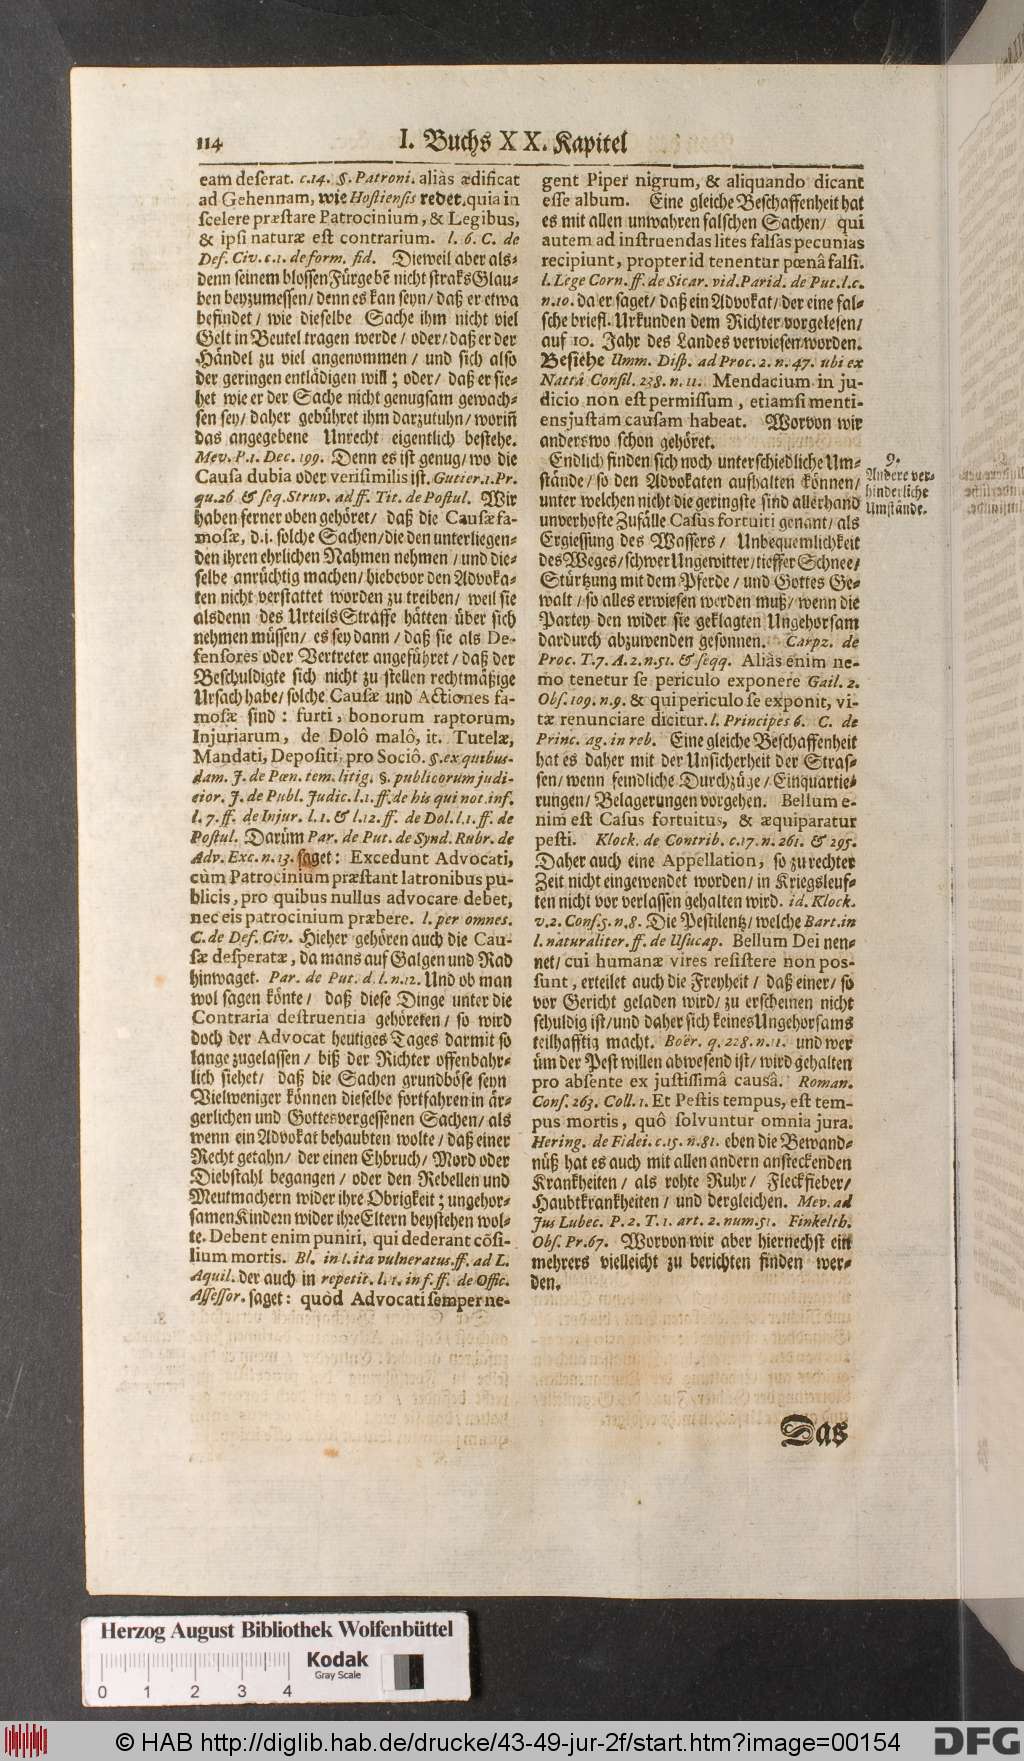 114
I. Buchs XX. Kapitel
eam deserat. c. 14. §. Patroni. aliàs ædificat
ad Gehennam, wie Hostiensis redet, quia in
scelere præstare Patrocinium, & Legibus,
& ipsi naturæ est contrarium. l. 6. C. de
Def. Civ. c. 1. de form. fid. Dieweil aber als-
denn seinem blossen Fürgebẽ nicht straks Glau-
ben beyzumessen/ denn es kan seyn/ daß er etwa
befindet/ wie dieselbe Sache ihm nicht viel
Gelt in Beutel tragen werde/ oder/ daß er der
Händel zu viel angenommen/ und sich also
der geringen entlädigen will; oder/ daß er sie-
het wie er der Sache nicht genugsam gewach-
sen sey/ daher gebühret ihm darzutuhn/ woriñ
das angegebene Unrecht eigentlich bestehe.
Mev. P. 1. Dec. 199. Denn es ist genug/ wo die
Causa dubia oder verisimilis ist. Gutier. 1. Pr.
qu. 26. & seq. Struv. ad ff. Tit. de Postul. Wir
haben ferner oben gehöret/ daß die Causæ fa-
mosæ, d.i. solche Sachen/ die den unterliegen-
den ihren ehrlichen Nahmen nehmen/ und die-
selbe anrüchtig machen/ hiebevor den Advoka-
ten nicht verstattet worden zu treiben/ weil sie
alsdenn des Urteils Straffe hätten über sich
nehmen müssen/ es sey dann/ daß sie als De-
fensores oder Vertreter angeführet/ daß der
Beschuldigte sich nicht zu stellen rechtmäßige
Ursach habe/ solche Causæ und Actiones fa-
mosæ sind: furti, bonorum raptorum,
Injuriarum, de Dolô malô, it. Tutelæ,
Mandati, Depositi, pro Sociô. §. ex quibus-
dam. J. de Pœn. tem. litig. §. publicorum judi-
cior. J. de Publ. Judic. l. 1. ff. de his qui not. inf.
l. 7. ff. de Injur. l. 1. & l. 12. ff. de Dol. l. 1. ff. de
Postul. Darüm Par. de Put. de Synd. Rubr. de
Adv. Exc. n. 13. saget: Excedunt Advocati,
cùm Patrocinium præstant latronibus pu-
blicis, pro quibus nullus advocare debet,
nec eis patrocinium præbere. l. per omnes.
C. de Def. Civ. Hieher gehören auch die Cau-
sæ desperatæ, da mans auf Galgen und Rad
hinwaget. Par. de Put. d. l. n. 12. Und ob man
wol sagen könte/ daß diese Dinge unter die
Contraria destruentia gehöreten/ so wird
doch der Advocat heutiges Tages darmit so
lange zugelassen/ biß der Richter offenbahr-
lich siehet/ daß die Sachen grundböse seyn
Vielweniger können dieselbe fortfahren in är-
gerlichen und Gottesvergessenen Sachen/ als
wenn ein Advokat behaubten wolte/ daß einer
Recht getahn/ der einen Ehbruch/ Mord oder
Diebstahl begangen/ oder den Rebellen und
Meutmachern wider ihre Obrigkeit; ungehor-
samen Kindern wider ihre Eltern beystehen wol-
te. Debent enim puniri, qui dederant cõsi-
lium mortis. Bl. in l. ita vulneratus. ff. ad L.
Aquil. der auch in repetit. l. 1. in f. ff. de Offic.
Assessor. saget: quòd Advocati semper ne-
gent Piper nigrum, & aliquando dicant
esse album. Eine gleiche Beschaffenheit hat
es mit allen unwahren falschen Sachen/ qui
autem ad instruendas lites falsas pecunias
recipiunt, propter id tenentur pœnâ falsi.
l. Lege Corn. ff. de Sicar. vid. Parid. de Put. l. c.
n. 10. da er saget/ daß ein Advokat/ der eine fal-
sche briefl. Urkunden dem Richter vorgelesen/
auf 10. Jahr des Landes verwiesen worden.
Besiehe Umm. Disp. ad Proc. 2. n. 47. ubi ex
Nattâ Consil. 238. n. 11. Mendacium in ju-
dicio non est permissum, etiamsi menti-
ens justam causam habeat. Worvon wir
anderswo schon gehöret.
Endlich finden sich noch unterschiedliche Um-
stände/ so den Advokaten aufhalten können/
unter welchen nicht die geringste sind allerhand
unverhofte Zufälle Casus fortuiti genant/ als
Ergiessung des Wassers/ Unbequemlichkeit
des Weges/ schwer Ungewitter/ tieffer Schnee/
Stürtzung mit dem Pferde/ und Gottes Ge-
walt/ so alles erwiesen werden muß/ wenn die
Partey den wider sie geklagten Ungehorsam
dardurch abzuwenden gesonnen. Carpz. de
Proc. T. 7. A. 2. n. 51. & seqq. Aliàs enim ne-
mo tenetur se periculo exponere Gail. 2.
Obs. 109. n. 9. & qui periculo se exponit, vi-
tæ renunciare dicitur. l. Principes 6. C. de
Princ. ag. in reb. Eine gleiche Beschaffenheit
hat es daher mit der Unsicherheit der Stras-
sen/ wenn feindliche Durchzüge/ Einquartie-
rungen/ Belagerungen vorgehen. Bellum e-
nim est Casus fortuitus, & æquiparatur
pesti. Klock. de Contrib. c. 17. n. 261. & 295.
Daher auch eine Appellation, so zu rechter
Zeit nicht eingewendet worden/ in Kriegsleuf-
ten nicht vor verlassen gehalten wird. id. Klock.
v. 2. Cons. 5. n. 8. Die Pestilentz/ welche Bart. in
l. naturaliter. ff. de Usucap. Bellum Dei nen-
net/ cui humanæ vires resistere non pos-
sunt, erteilet auch die Freyheit/ daß einer/ so
vor Gericht geladen wird/ zu erscheinen nicht
schuldig ist/ und daher sich keines Ungehorsams
teilhafftig macht. Boër. q. 228. n. 11. und wer
üm der Pest willen abwesend ist/ wird gehalten
pro absente ex justissimâ causâ. Roman.
Cons. 263. Coll. 1. Et Pestis tempus, est tem-
pus mortis, quô solvuntur omnia jura.
Hering. de Fidei. c. 15. n. 81. eben die Bewand-
nüß hat es auch mit allen andern ansteckenden
Krankheiten/ als rohte Ruhr/ Fleckfieber/
Haubtkrankheiten/ und dergleichen. Mev. ad
Jus Lubec. P. 2. T. 1. art. 2. num. 51. Finkelth.
Obs. Pr. 67. Worvon wir aber hiernechst ein
mehrers vielleicht zu berichten finden wer-
den.
9.
Andere ver-
hinderliche
Umstände.
Das
Herzog August Bibliothek Wolfenbüttel
Kodak
Gray Scale
0 1 2 3 4
© HAB http://diglib.hab.de/drucke/43-49-jur-2f/start.htm?image=00154
DFG